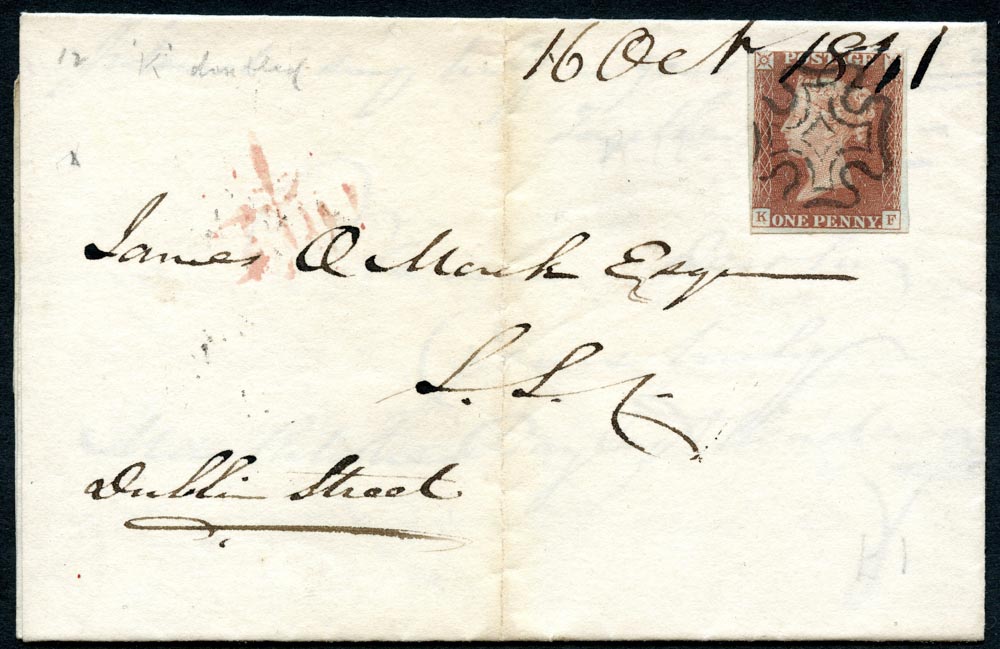 16 Oct 1841
12 'K' doubled
POSTAGE
K ONE PENNY. F
James O Mark Esqr
S. S.
Dublin Street